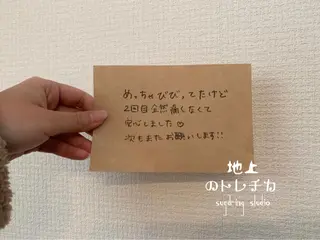 めっちゃびびってたけど
2回目全然痛くなくて
安心しました
次もまたお願いします!!
地上
のトレチカ
sugaring studio